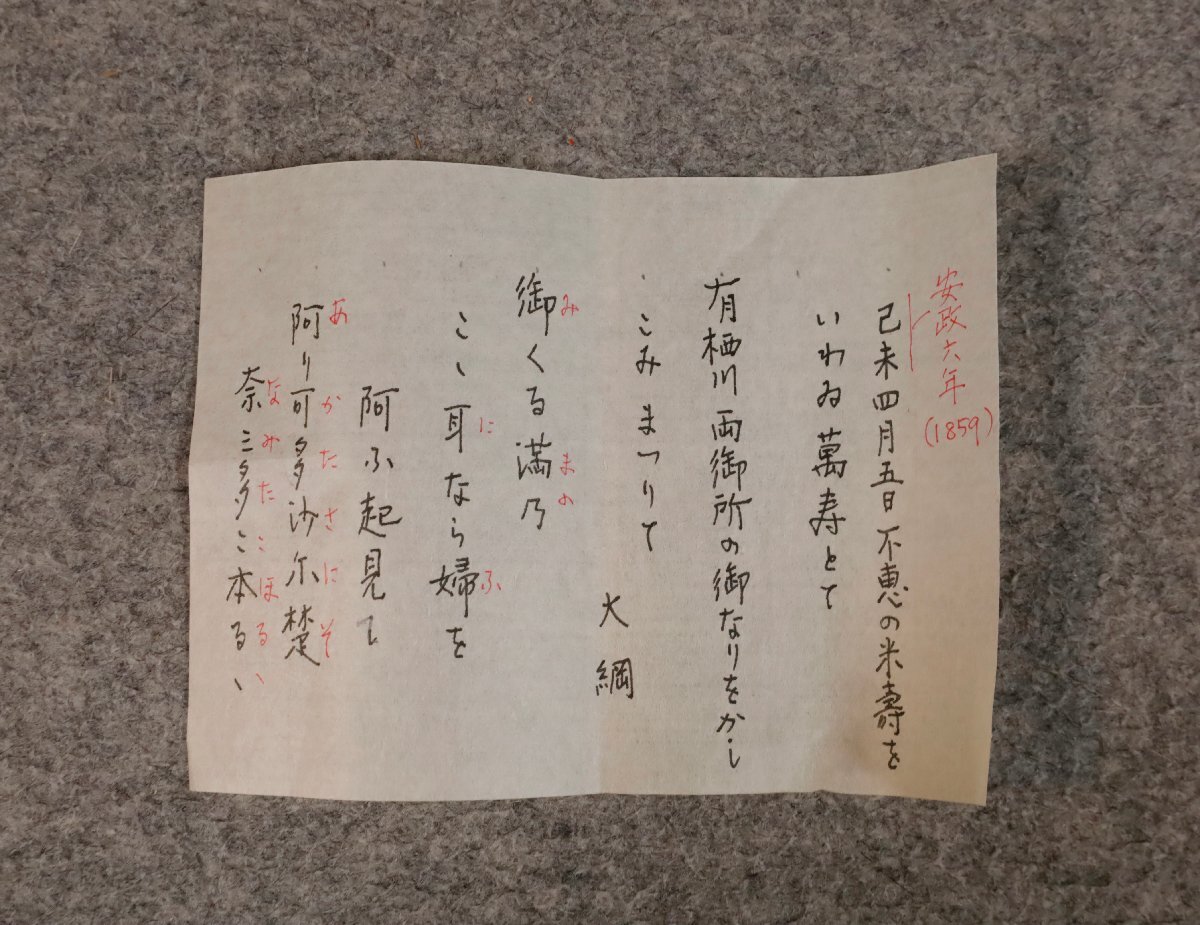 安政六年
(1859)
己未四月五日不恵の米壽を
いわゐ萬寿とて
有栖川両御所の御なりをかし
こみまつりて
大綱
御くる満乃
み ま の
こゝ耳なら婦を
に ふ
阿ふ起見て
阿り可多沙尓楚
あ か た さ に そ
奈ミ多こ本るゝ
なみたこほるゝ